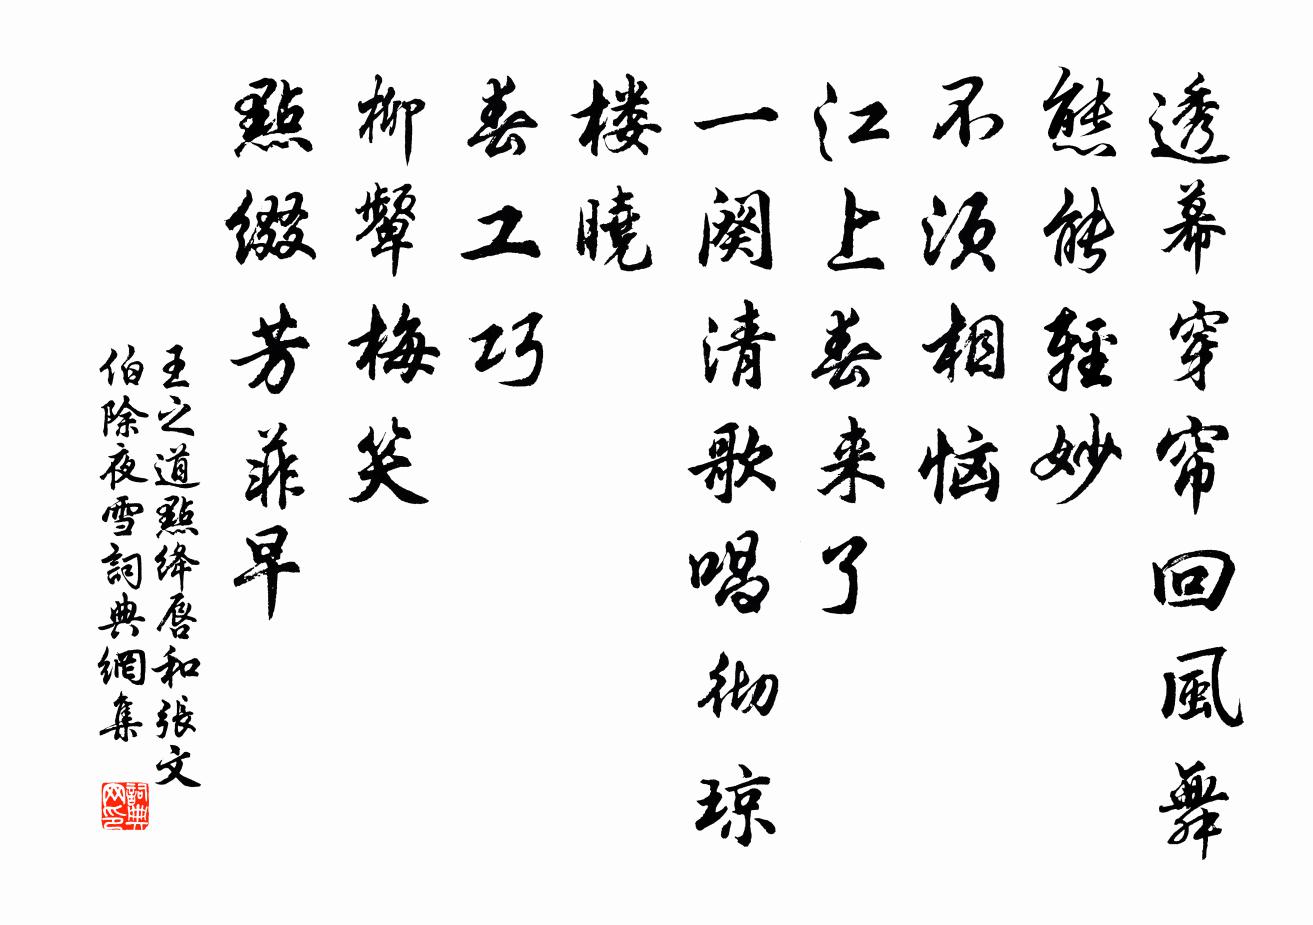 透幕穿帘回風舞
態能輕妙
不須相恼
江上春来了
一闋清歌唱彻琼
楼曉
春工巧
柳顰梅笑
點綴芳菲早
王之道點绛唇和張文
伯除夜雪詞典網集
詞典
网印